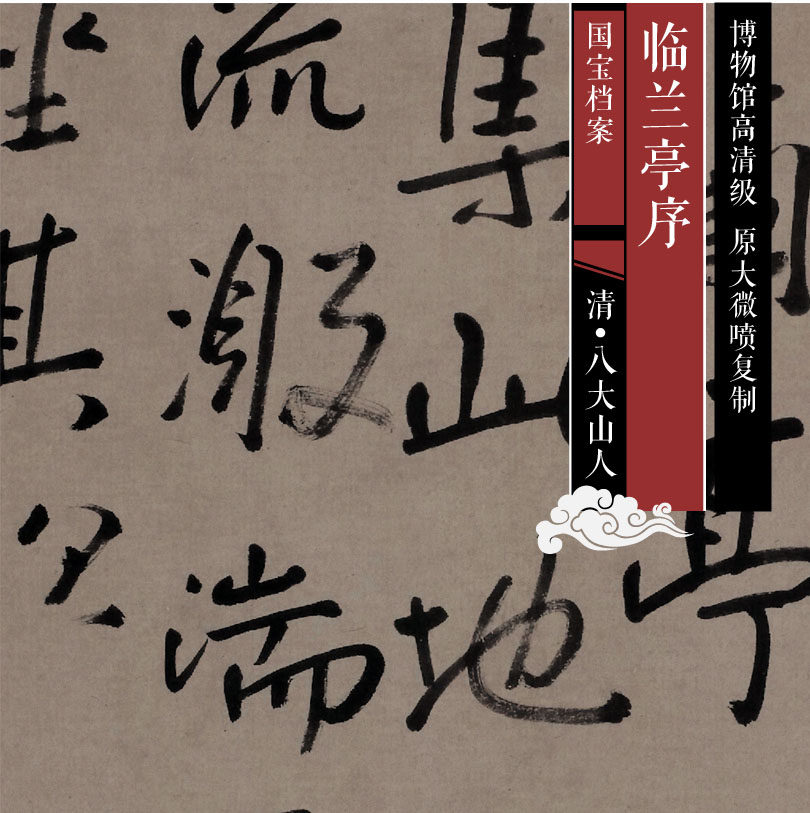 博物馆高清级 原大微喷复制
临兰亭序
国宝档案
清·八大山人
亭
集山地
流激湍
坐其次